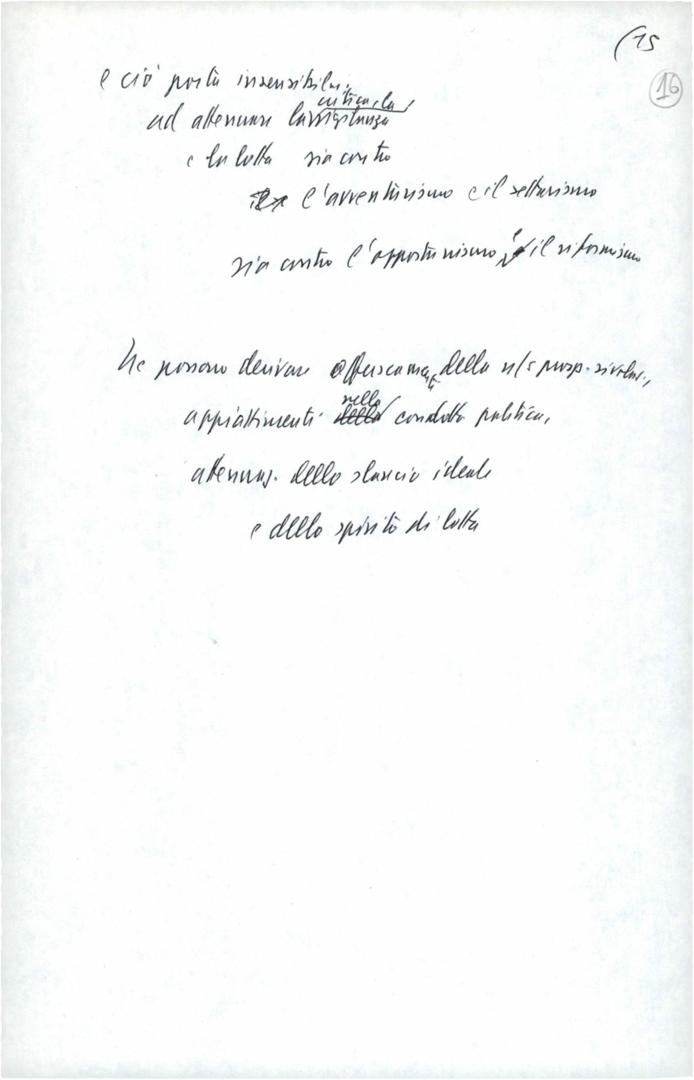 (15
16
e ciò porta insensibilm.
ad attenuare la critica, la vigilanza
e la lotta sia contro
l'avventurismo e il settarismo
sia contro l'opportunismo e il riformismo
Ne possono derivare offuscamenti della n/s prosp. rivoluz.,
appiattimenti nella condotta politica,
attenuaz. dello slancio ideale
e dello spirito di lotta